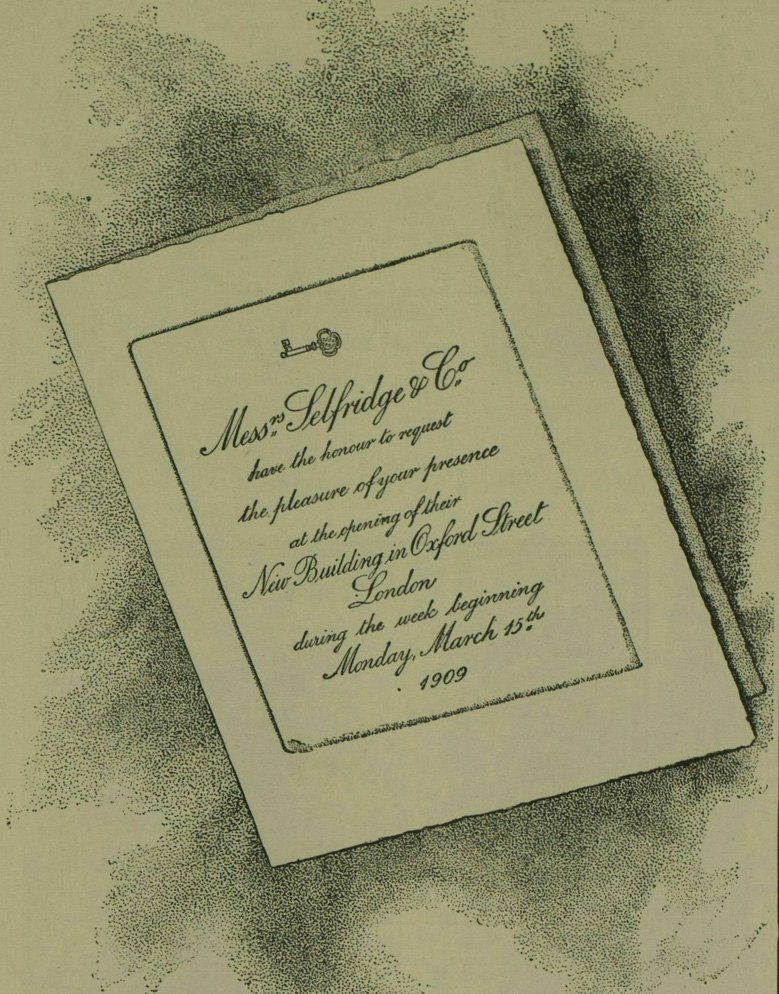 Messrs. Selfridge & Co.
have the honour to request
the pleasure of your presence
at the opening of their
New Building in Oxford Street
London
during the week beginning
Monday, March 15th.
1909